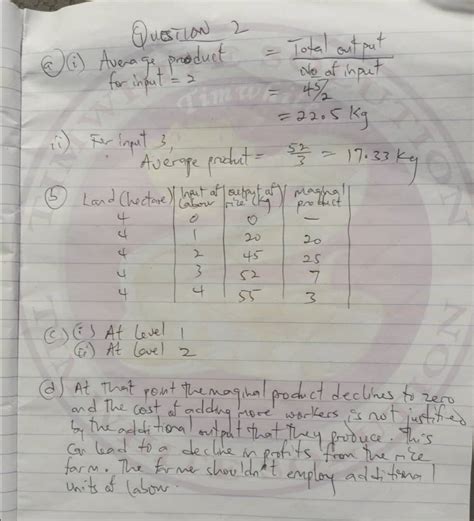 Question 2
a) (i) Average product = Total output
for input = 2 No of input
= 45/2
= 22.5 Kg
ii) For input 3,
Average product = 52/3 = 17.33 Kg
b) Land (hectare) Input of labour output of rice (kg maginal product
4 0 0 —
4 1 20 20
4 2 45 25
4 3 52 7
4 4 55 3
c) (i) At level 1
(ii) At level 2
d) At that point the maginal product declines to zero
and the cost of adding more workers is not justified
by the additional output that they produce. This
can lead to a decline in profits from the rice
farm. The farmer shouldn't employ additional
units of labour.